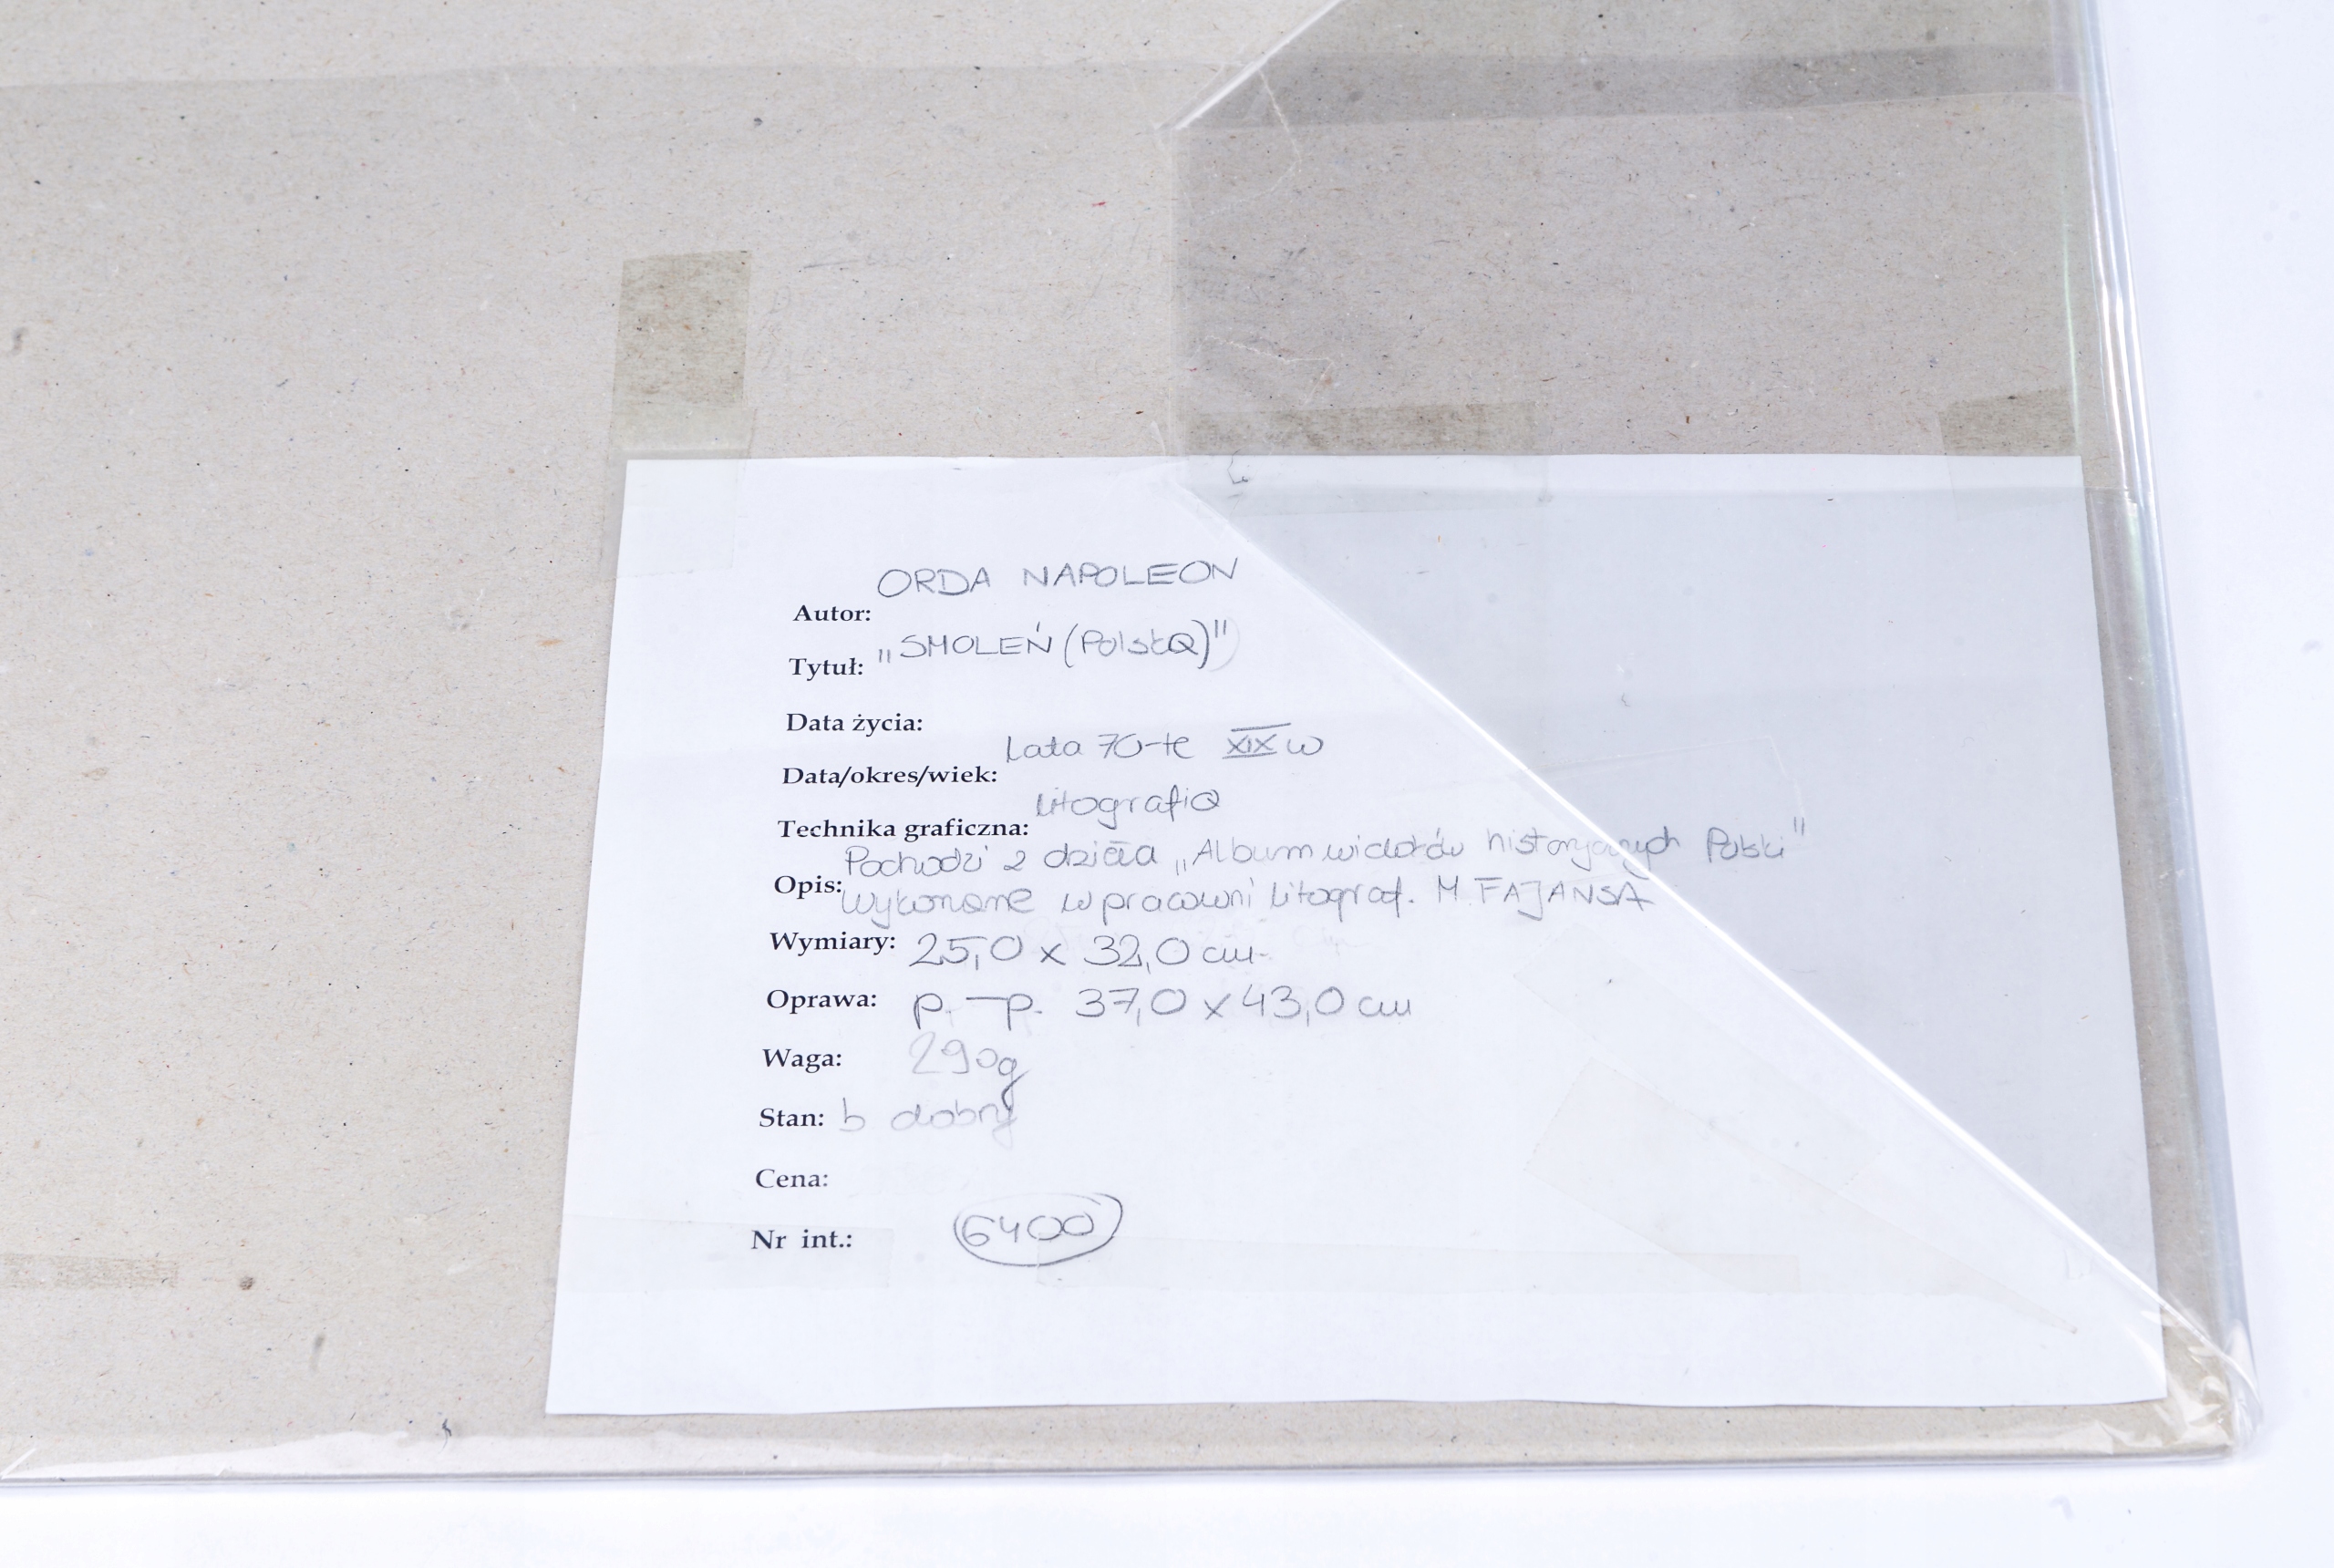 ORDA NAPOLEON
Autor:
Tytuł: „SMOLEŃ (Polska)"
Data życia:
Data/okres/wiek: Lata 70-te XIX w
Technika graficzna: litografia
Opis: Pochodzi z dzieła „Album widoków historycznych Polski"
wykonane w pracowni litograf. M. FAJANSA
Wymiary: 25,0 x 32,0 cm
Oprawa: p.-p. 37,0 x 43,0 cm
Waga: 290g
Stan: b dobry
Cena:
Nr int.: 6400